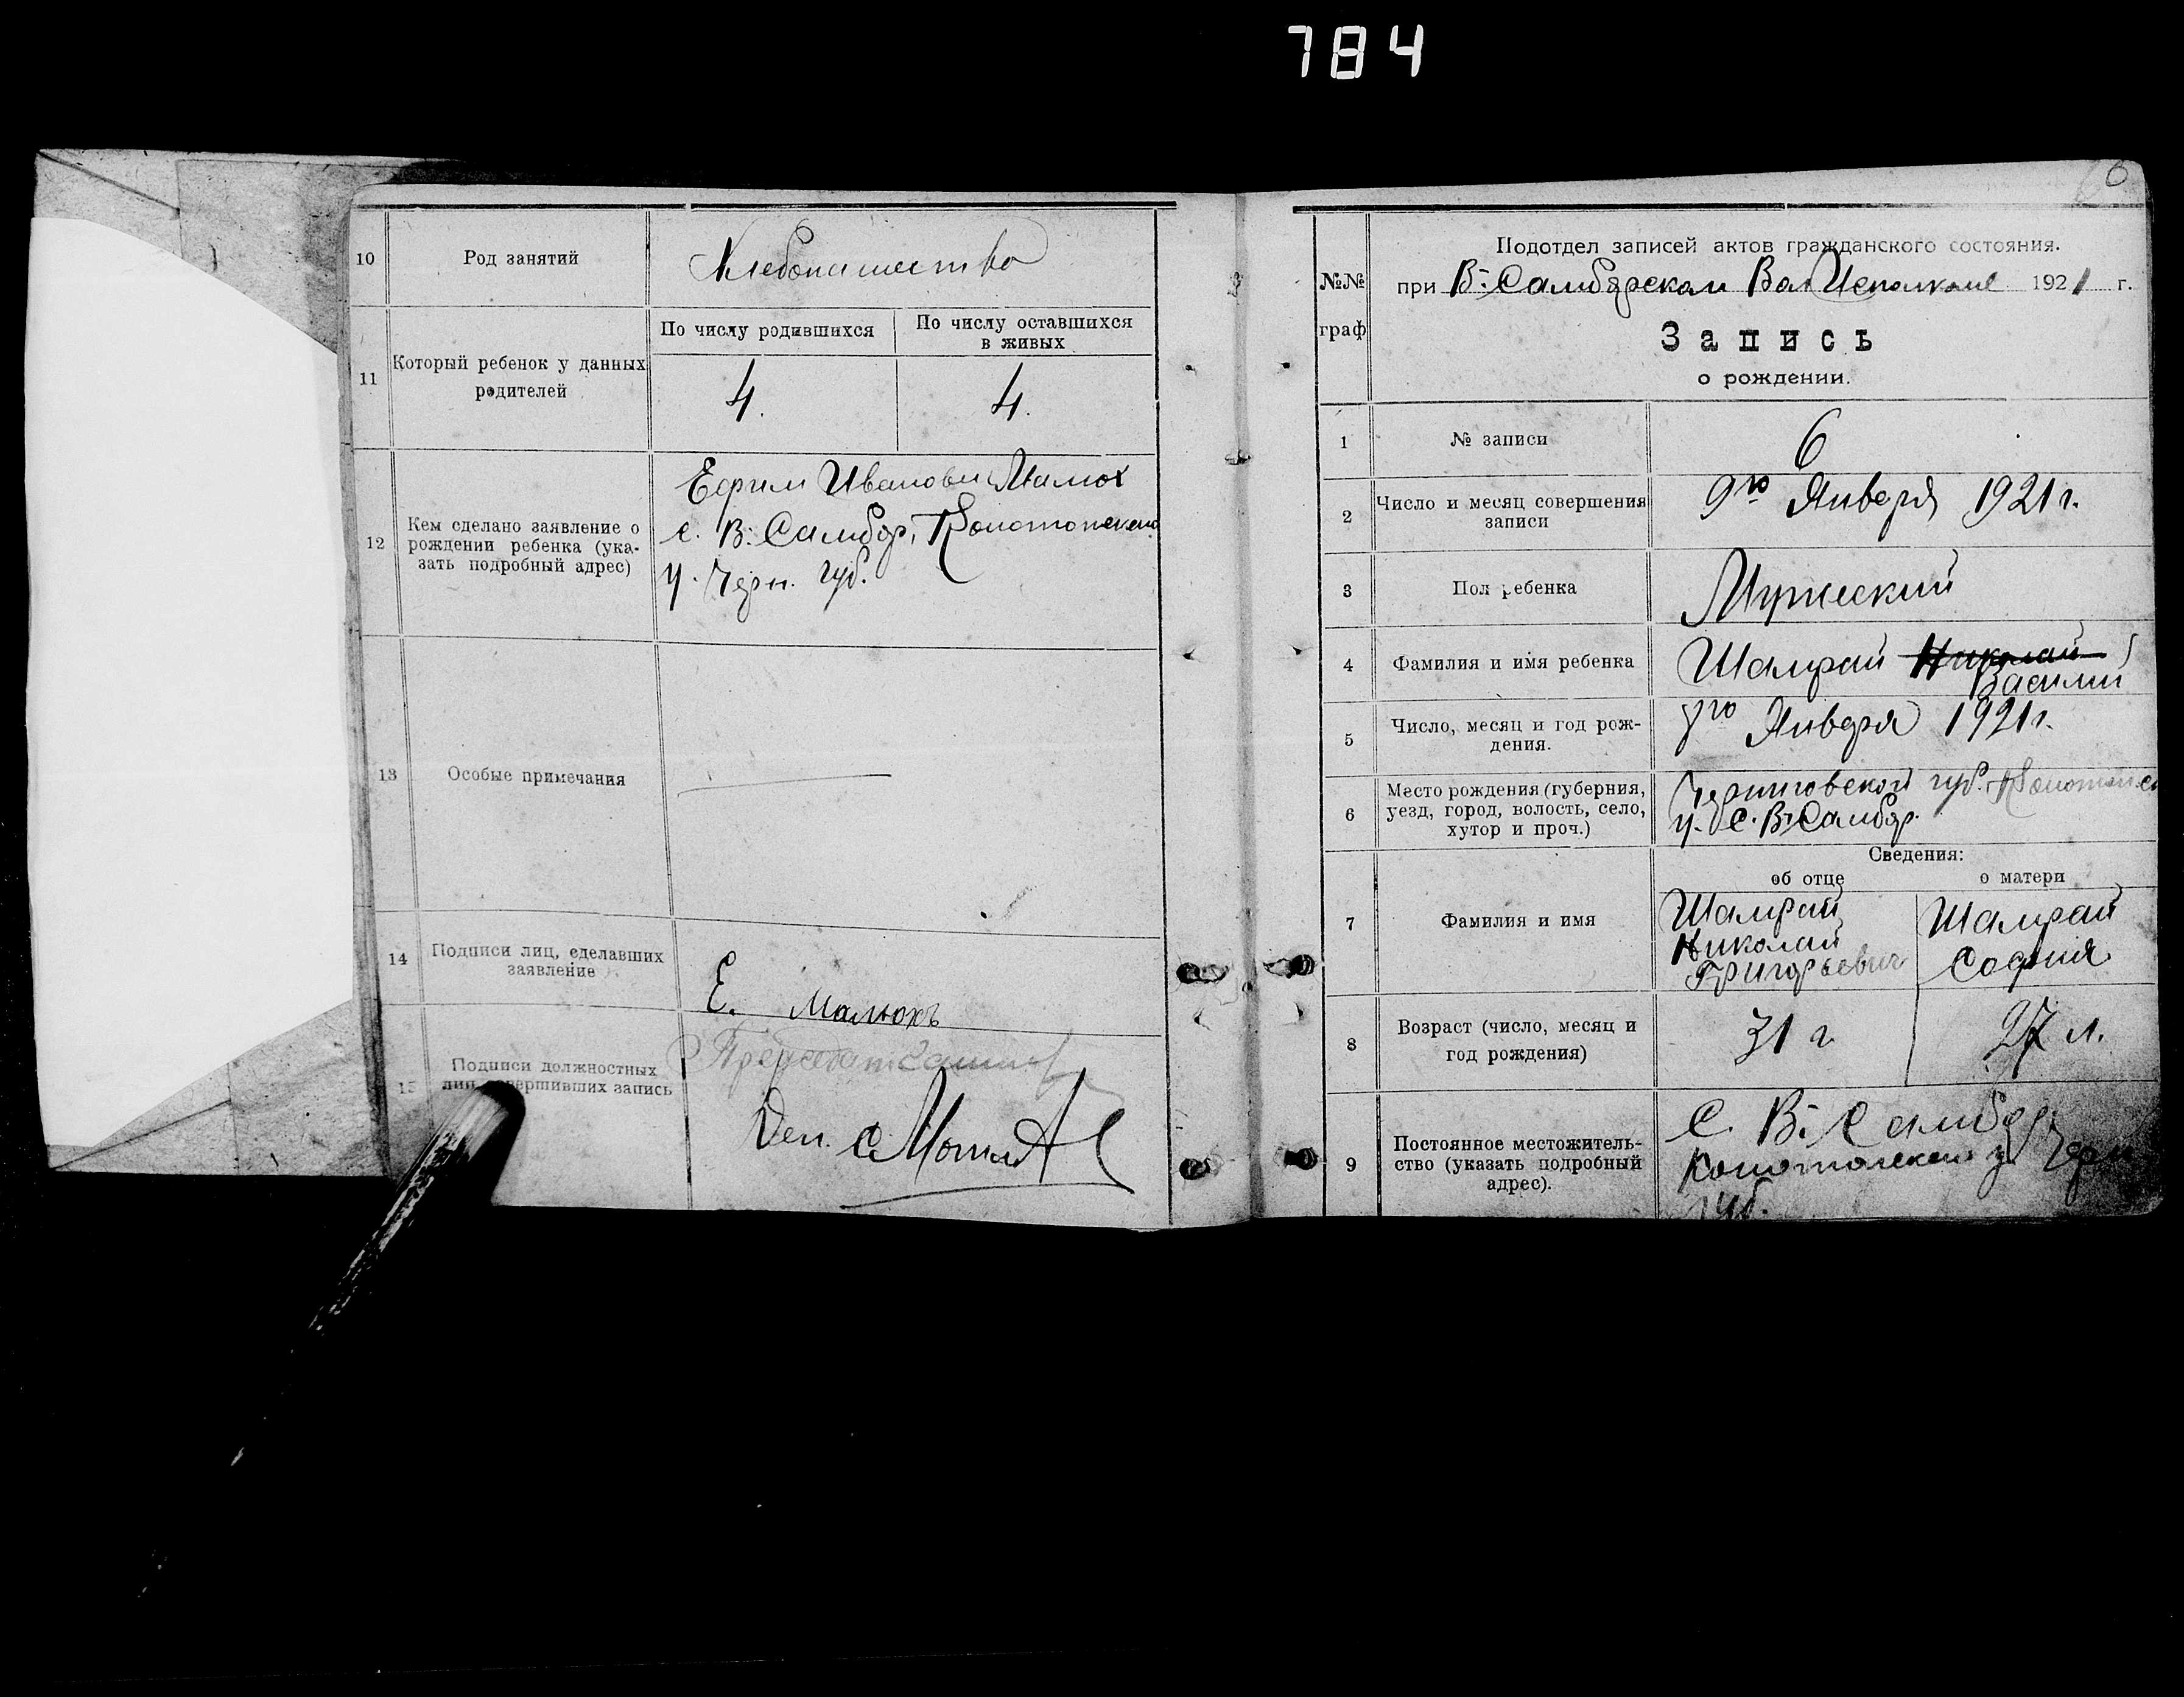 784
10
Род занятий
Хлебопашество
11
Который ребенок у данных
родителей
По числу родившихся
По числу оставшихся
в живых
4.
4.
12
Кем сделано заявление о
рождении ребенка (ука-
зать подробный адрес)
Ефрем Иванович Малюх
с. В: Самбор, Конотопского
у. Черн. губ.
13
Особые примечания
14
Подписи лиц, сделавших
заявление
Е. Малюхъ
15
Подписи должностных
лиц совершивших запись
Председат
Дел.
6
№№
граф
Подотдел записей актов гражданского состояния.
при В: Самборском Вол Исполкоме 1921 г.
Запись
о рождении.
1
№ записи
6
2
Число и месяц совершения
записи
9го Января 1921 г.
3
Пол ребенка
Мужеский
4
Фамилия и имя ребенка
Шамрай Николай
Василий
5
Число, месяц и год рож-
дения.
го Января 1921 г.
6
Место рождения (губерния,
уезд, город, волость, село,
хутор и проч.)
Черниговской губ. Конотопск
у. с. В: Самбор.
Сведения:
об отце
о матери
7
Фамилия и имя
Шамрай
Николай
Григорьевич
Шамрай
София
8
Возраст (число, месяц и
год рождения)
31 г.
27 л.
9
Постоянное местожитель-
ство (указать подробный
адрес).
С. В: Самбор,
Конотопского у. Черн
губ.